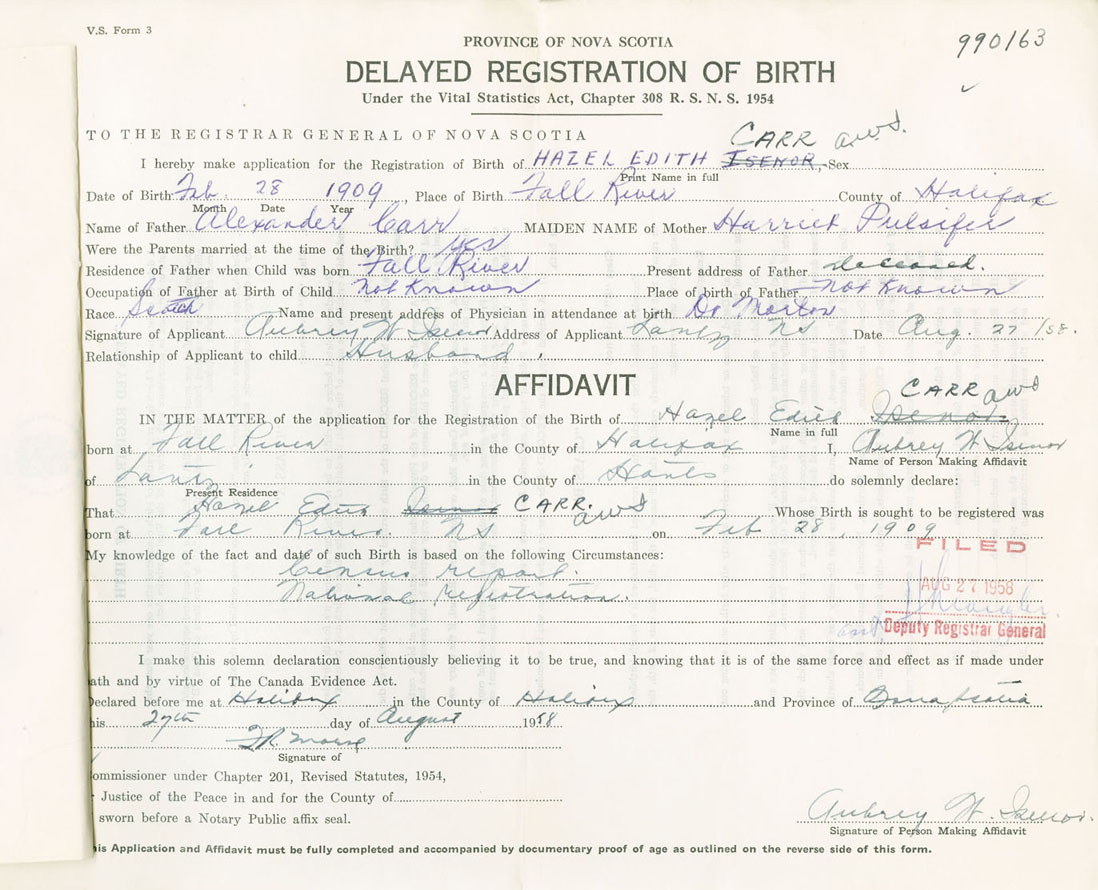 V.S. Form 3
990163
PROVINCE OF NOVA SCOTIA
DELAYED REGISTRATION OF BIRTH
Under the Vital Statistics Act, Chapter 308 R. S. N. S. 1954
TO THE REGISTRAR GENERAL OF NOVA SCOTIA
CARR awI
I hereby make application for the Registration of Birth of HAZEL EDITH ISENOR, Sex
Print Name in full
Date of Birth Feb. 28 1909, Place of Birth Fall River County of Halifax
Month Date Year
Name of Father Alexander Carr MAIDEN NAME of Mother Harriet Pulsifer
Were the Parents married at the time of the Birth? yes
Residence of Father when Child was born Fall River Present address of Father deceased.
Occupation of Father at Birth of Child Not Known Place of birth of Father Not Known
Race Scotch Name and present address of Physician in attendance at birth Dr Morton
Signature of Applicant Aubrey W Isenor Address of Applicant Lantz NS Date Aug. 27/58.
Relationship of Applicant to child Husband.
AFFIDAVIT
CARR awI
IN THE MATTER of the application for the Registration of the Birth of Hazel Edith Isenor
Name in full
born at Fall River in the County of Halifax I, Aubrey W Isenor
Name of Person Making Affidavit
of Lantz in the County of Hants do solemnly declare:
Present Residence
That Hazel Edith Isenor CARR. awI Whose Birth is sought to be registered was
born at Fall River. NS on Feb 28, 1909
My knowledge of the fact and date of such Birth is based on the following Circumstances:
Census report.
National registration.
FILED
AUG 27 1958
Deputy Registrar General
I make this solemn declaration conscientiously believing it to be true, and knowing that it is of the same force and effect as if made under
ath and by virtue of The Canada Evidence Act.
Declared before me at Halifax in the County of Halifax and Province of Nova Scotia
his 27th day of August 1958
Signature of
ommissioner under Chapter 201, Revised Statutes, 1954,
Justice of the Peace in and for the County of
sworn before a Notary Public affix seal.
Aubrey W. Isenor.
Signature of Person Making Affidavit
is Application and Affidavit must be fully completed and accompanied by documentary proof of age as outlined on the reverse side of this form.